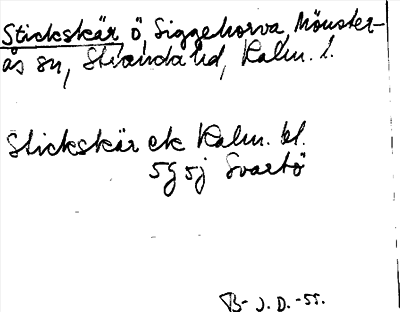 Stickskär ö, Siggehorva, Mönster-
ås sn, Stranda hd, Kalm. l.
Stickskär ek Kalm. bl.
5g 5j Svartö
B- J. D. -55.